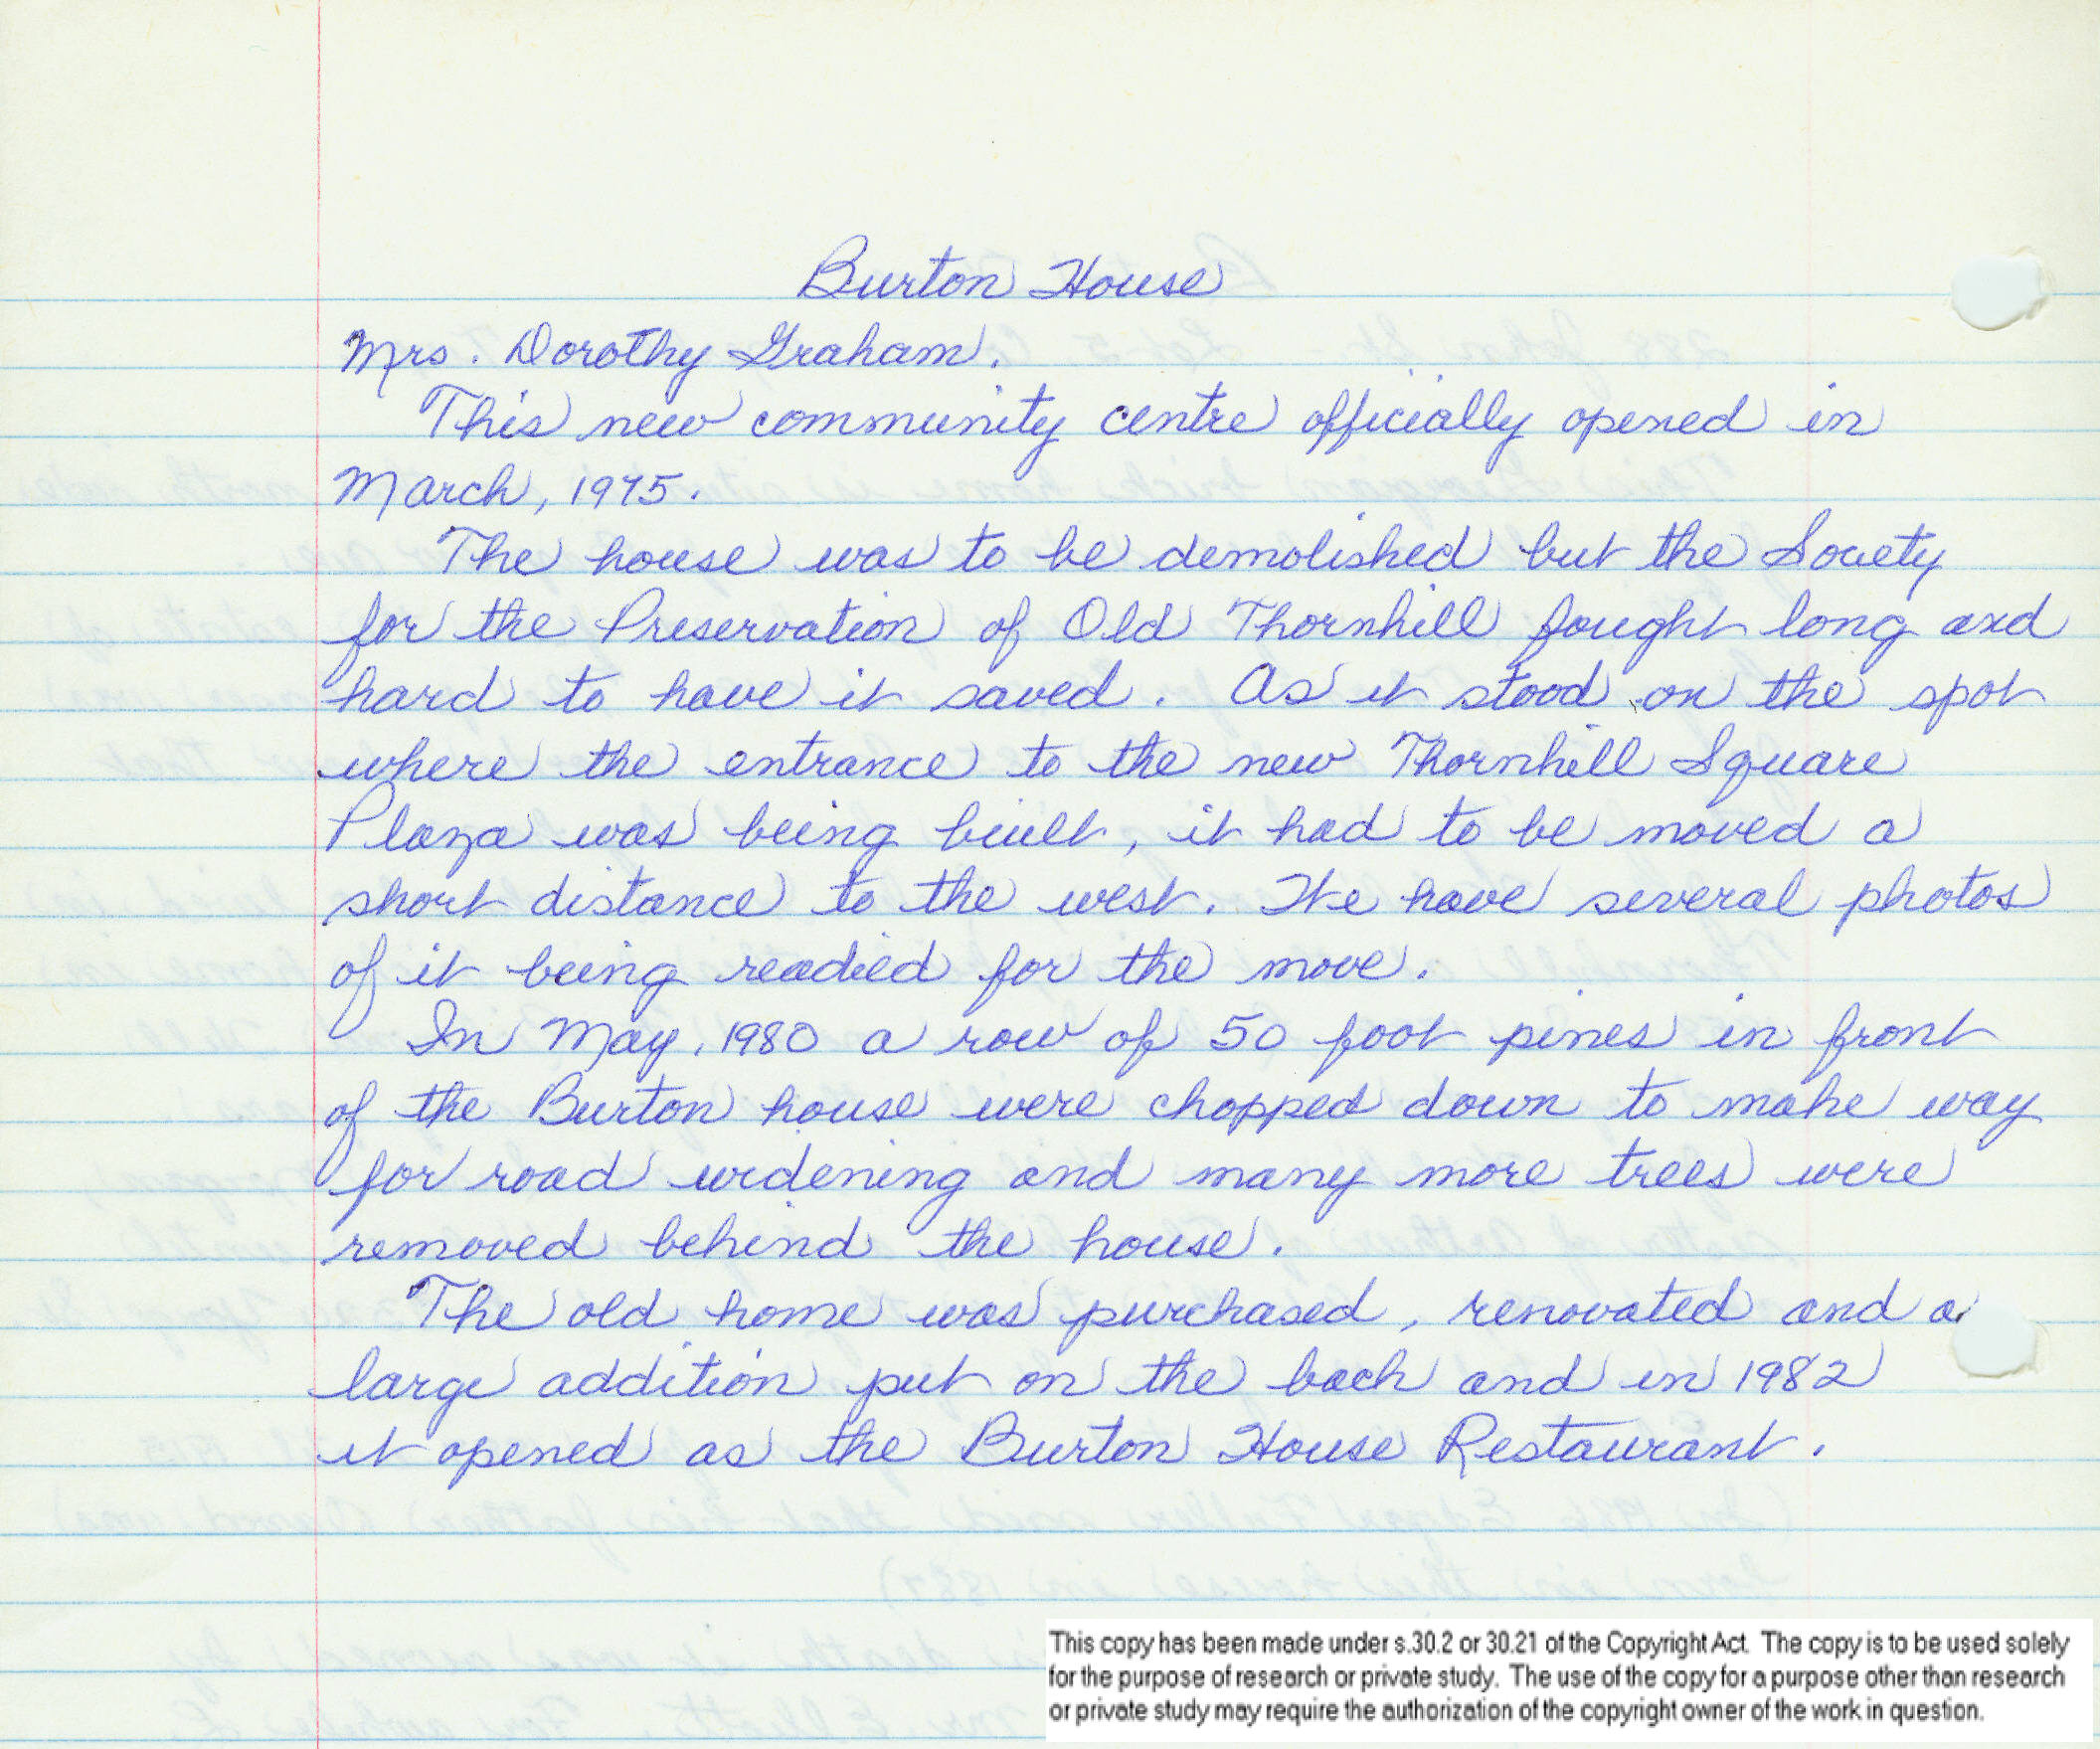 Burton House
Mrs. Dorothy Graham.
This new community centre officially opened in
March, 1975.
The house was to be demolished but the Society
for the Preservation of Old Thornhill fought long and
hard to have it saved. As it stood on the spot
where the entrance to the new Thornhill Square
Plaza was being built, it had to be moved a
short distance to the west. We have several photos
of it being readied for the move.
In May, 1980 a row of 50 foot pines in front
of the Burton house were chopped down to make way
for road widening and many more trees were
removed behind the house.
The old home was purchased, renovated and a
large addition put on the back and in 1982
it opened as the Burton House Restaurant.
This copy has been made under s.30.2 or 30.21 of the Copyright Act. The copy is to be used solely
for the purpose of research or private study. The use of the copy for a purpose other than research
or private study may require the authorization of the copyright owner of the work in question.